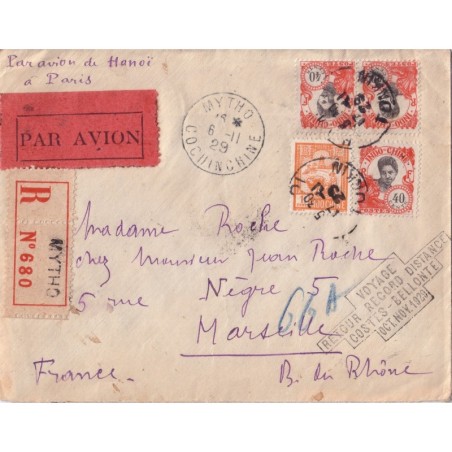 Par avion de Hanoï
à Paris
PAR AVION
MYTHO
6-11
29
COCHINCHINE
R
N° 680
MYTHO
INDO-CHINE
40
TONKIN
Madame Roche
chez Monsieur Jean Roche
5 rue Nègre 5
Marseille
B. du Rhône
France
66A
VOYAGE
RETOUR RECORD DISTANCE
COSTES-BELLONTE
(OCT.NOV.1929)